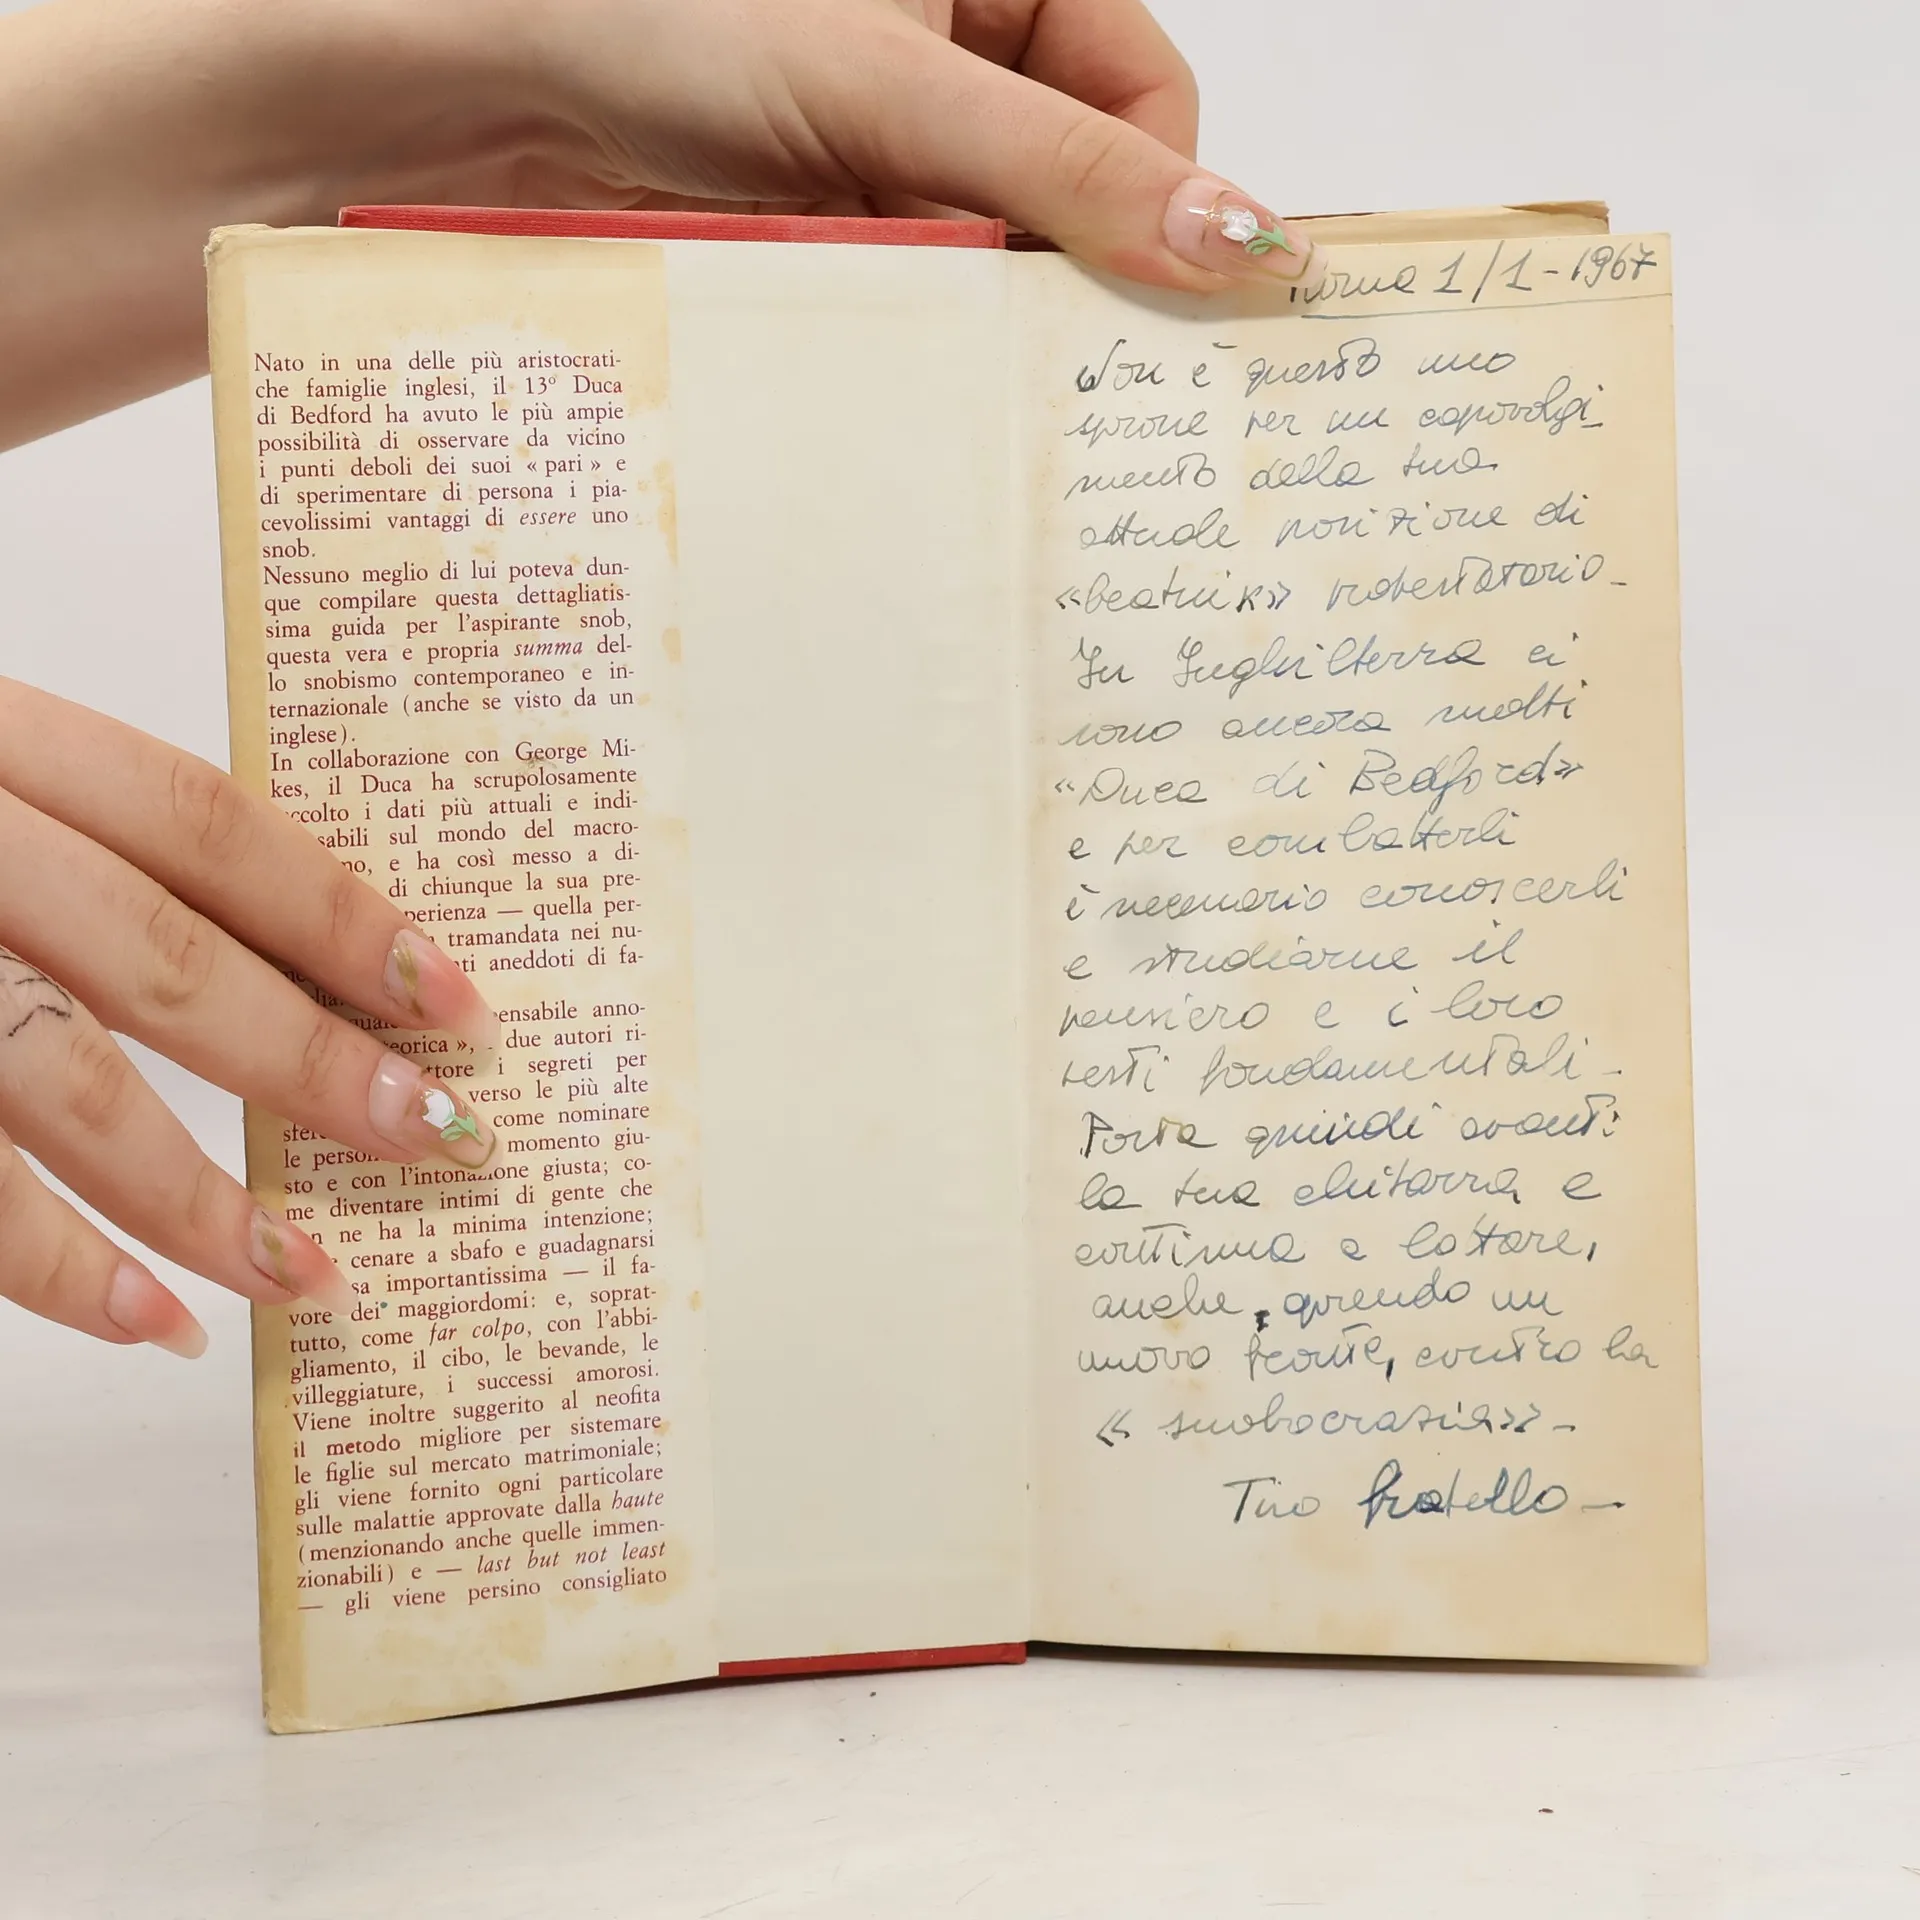 Nato in una delle più aristocrati-
che famiglie inglesi, il 13º Duca
di Bedford ha avuto le più ampie
possibilità di osservare da vicino
i punti deboli dei suoi « pari » e
di sperimentare di persona i pia-
cevolissimi vantaggi di essere uno
snob.
Nessuno meglio di lui poteva dun-
que compilare questa dettagliatis-
sima guida per l'aspirante snob,
questa vera e propria summa del-
lo snobismo contemporaneo e in-
ternazionale (anche se visto da un
inglese).
In collaborazione con George Mi-
kes, il Duca ha scrupolosamente
ccolto i dati più attuali e indi-
sabili sul mondo del macro-
no, e ha così messo a di-
di chiunque la sua pre-
perienza — quella per-
tramandata nei nu-
ti aneddoti di fa-
lia.
ensabile anno-
eorica », due autori ri-
ttore i segreti per
verso le più alte
sfere come nominare
le person momento giu-
sto e con l'intonazione giusta; co-
me diventare intimi di gente che
n ne ha la minima intenzione;
cenare a sbafo e guadagnarsi
sa importantissima — il fa-
vore dei maggiordomi: e, soprat-
tutto, come far colpo, con l'abbi-
gliamento, il cibo, le bevande, le
villeggiature, i successi amorosi.
Viene inoltre suggerito al neofita
il metodo migliore per sistemare
le figlie sul mercato matrimoniale;
gli viene fornito ogni particolare
sulle malattie approvate dalla haute
(menzionando anche quelle immen-
zionabili) e — last but not least
— gli viene persino consigliato
1/1-1967
Non è questo uno
sprone per un capovolgi-
mento della tua
attuale posizione di
«beatnik» protestatario-
In Inghilterra ci
sono ancora molti
«Duca di Bedford»
e per combatterli
è necessario conoscerli
e studiarne il
pensiero e i loro
testi fondamentali-
Porta quindi avanti
la tua chitarra e
continua a lottare,
anche, aprendo un
nuovo fronte, contro la
«snobocrazia»-
Tuo fratello-